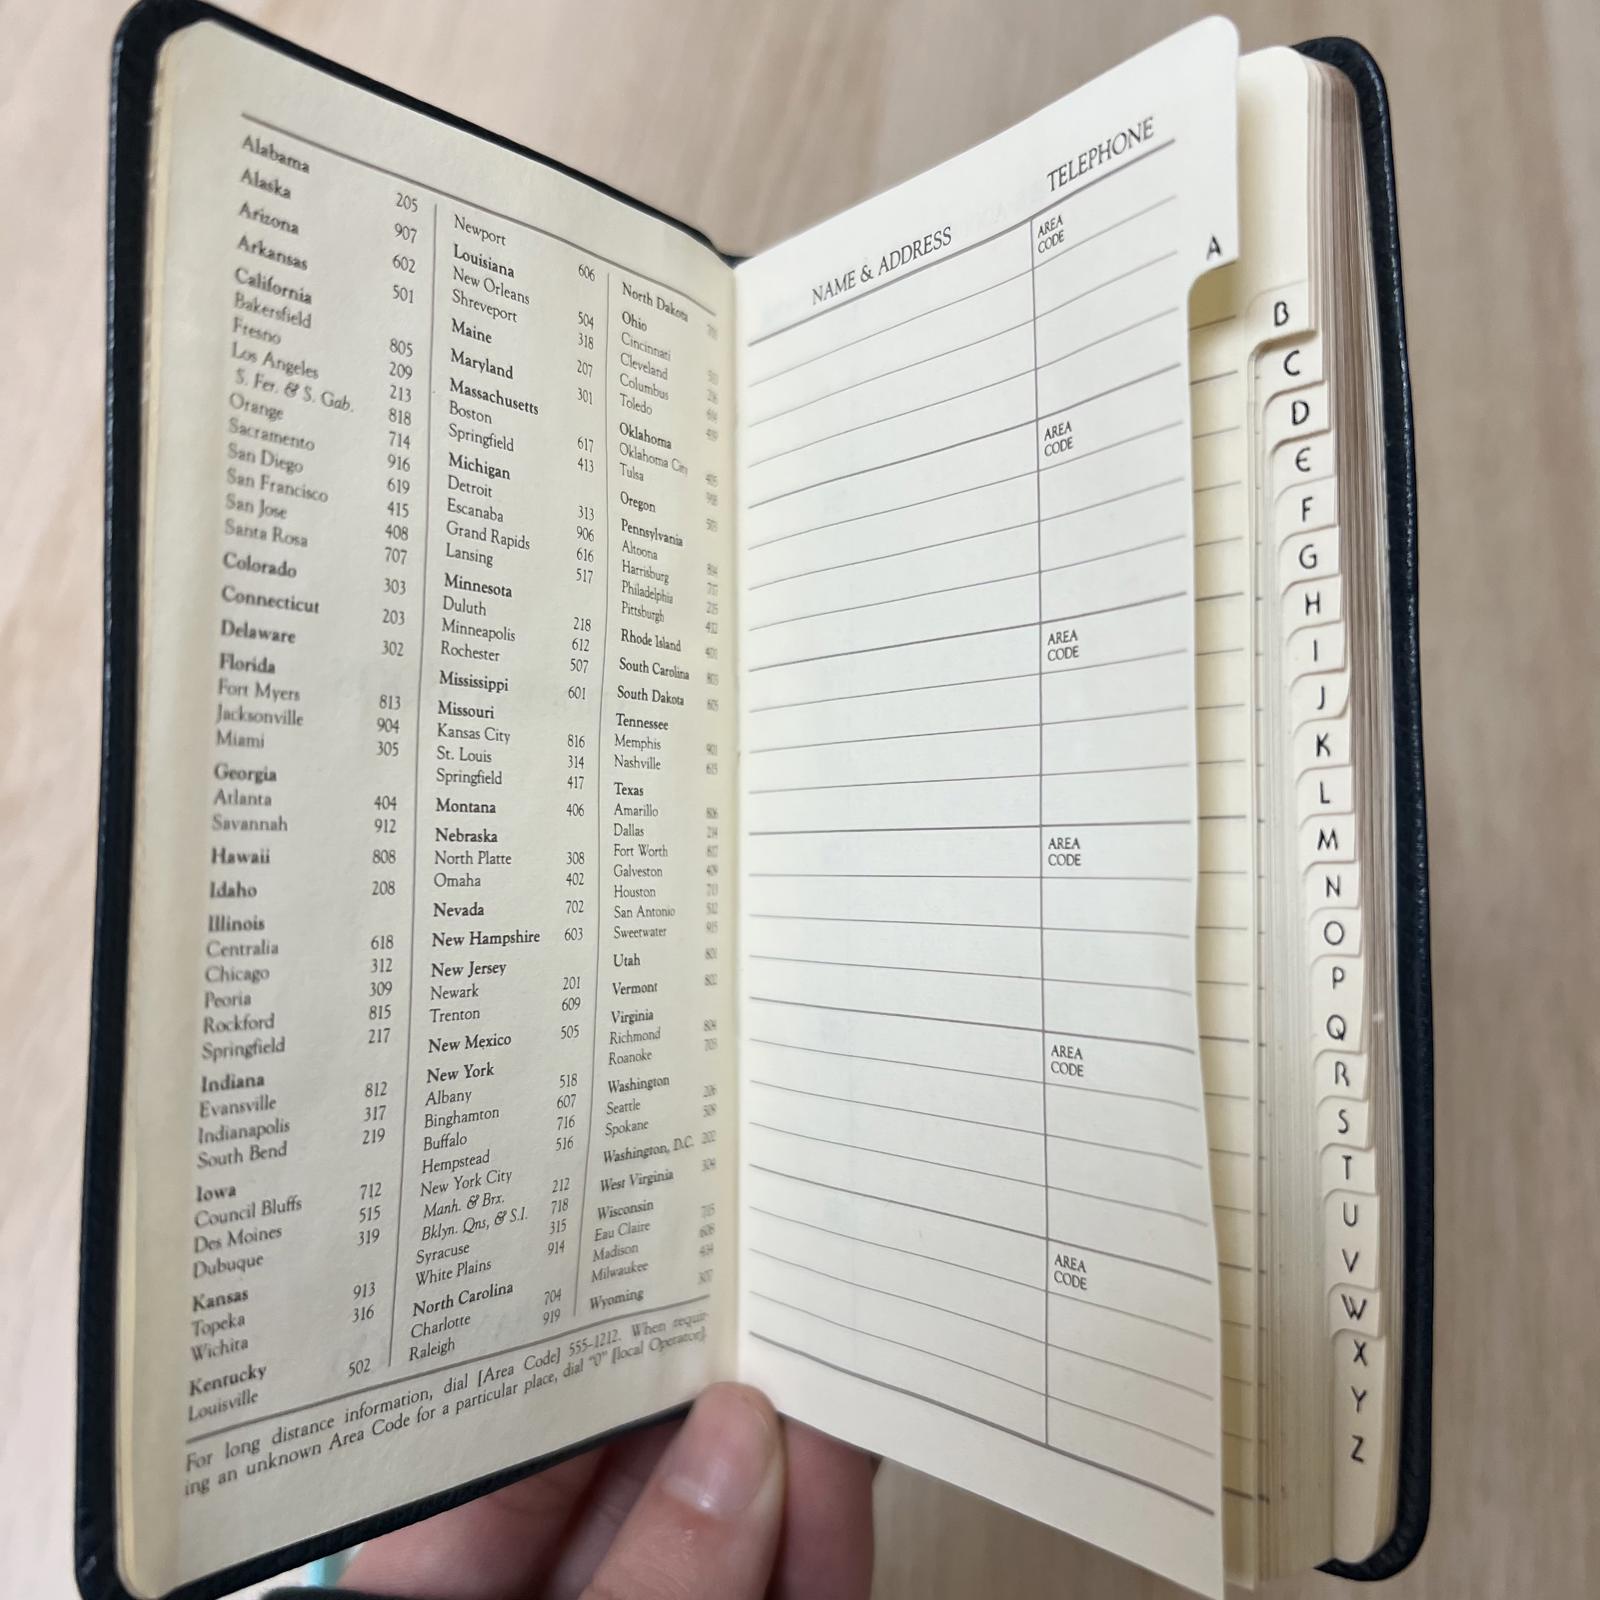 Alabama 205
Alaska 907
Arizona 602
Arkansas 501
California
Bakersfield 805
Fresno 209
Los Angeles 213
S. Fer. & S. Gab. 818
Orange 714
Sacramento 916
San Diego 619
San Francisco 415
San Jose 408
Santa Rosa 707
Colorado 303
Connecticut 203
Delaware 302
Florida
Fort Myers 813
Jacksonville 904
Miami 305
Georgia
Atlanta 404
Savannah 912
Hawaii 808
Idaho 208
Illinois
Centralia 618
Chicago 312
Peoria 309
Rockford 815
Springfield 217
Indiana
Evansville 812
Indianapolis 317
South Bend 219
Iowa
Council Bluffs 712
Des Moines 515
Dubuque 319
Kansas
Topeka 913
Wichita 316
Kentucky
Louisville 502
Newport 606
Louisiana
New Orleans 504
Shreveport 318
Maine 207
Maryland 301
Massachusetts
Boston 617
Springfield 413
Michigan
Detroit 313
Escanaba 906
Grand Rapids 616
Lansing 517
Minnesota
Duluth 218
Minneapolis 612
Rochester 507
Mississippi 601
Missouri
Kansas City 816
St. Louis 314
Springfield 417
Montana 406
Nebraska
North Platte 308
Omaha 402
Nevada 702
New Hampshire 603
New Jersey
Newark 201
Trenton 609
New Mexico 505
New York
Albany 518
Binghamton 607
Buffalo 716
Hempstead 516
New York City
Manh. & Brx. 212
Bklyn. Qns, & S.I. 718
Syracuse 315
White Plains 914
North Carolina
Charlotte 704
Raleigh 919
North Dakota
Ohio
Cincinnati
Cleveland
Columbus
Toledo
Oklahoma
Oklahoma City
Tulsa
Oregon
Pennsylvania
Altoona
Harrisburg
Philadelphia
Pittsburgh
Rhode Island
South Carolina
South Dakota
Tennessee
Memphis 901
Nashville 615
Texas
Amarillo
Dallas
Fort Worth
Galveston
Houston
San Antonio
Sweetwater
Utah 801
Vermont 802
Virginia
Richmond 804
Roanoke 703
Washington
Seattle 206
Spokane
Washington, D.C. 202
West Virginia 304
Wisconsin
Eau Claire 715
Madison
Milwaukee
Wyoming
For long distance information, dial [Area Code] 555–1212. When requir-
ing an unknown Area Code for a particular place, dial "0" [local Operator].
NAME & ADDRESS TELEPHONE
AREA
CODE
AREA
CODE
AREA
CODE
AREA
CODE
AREA
CODE
AREA
CODE
A
B
C
D
E
F
G
H
I
J
K
L
M
N
O
P
Q
R
S
T
U
V
W
X
Y
Z